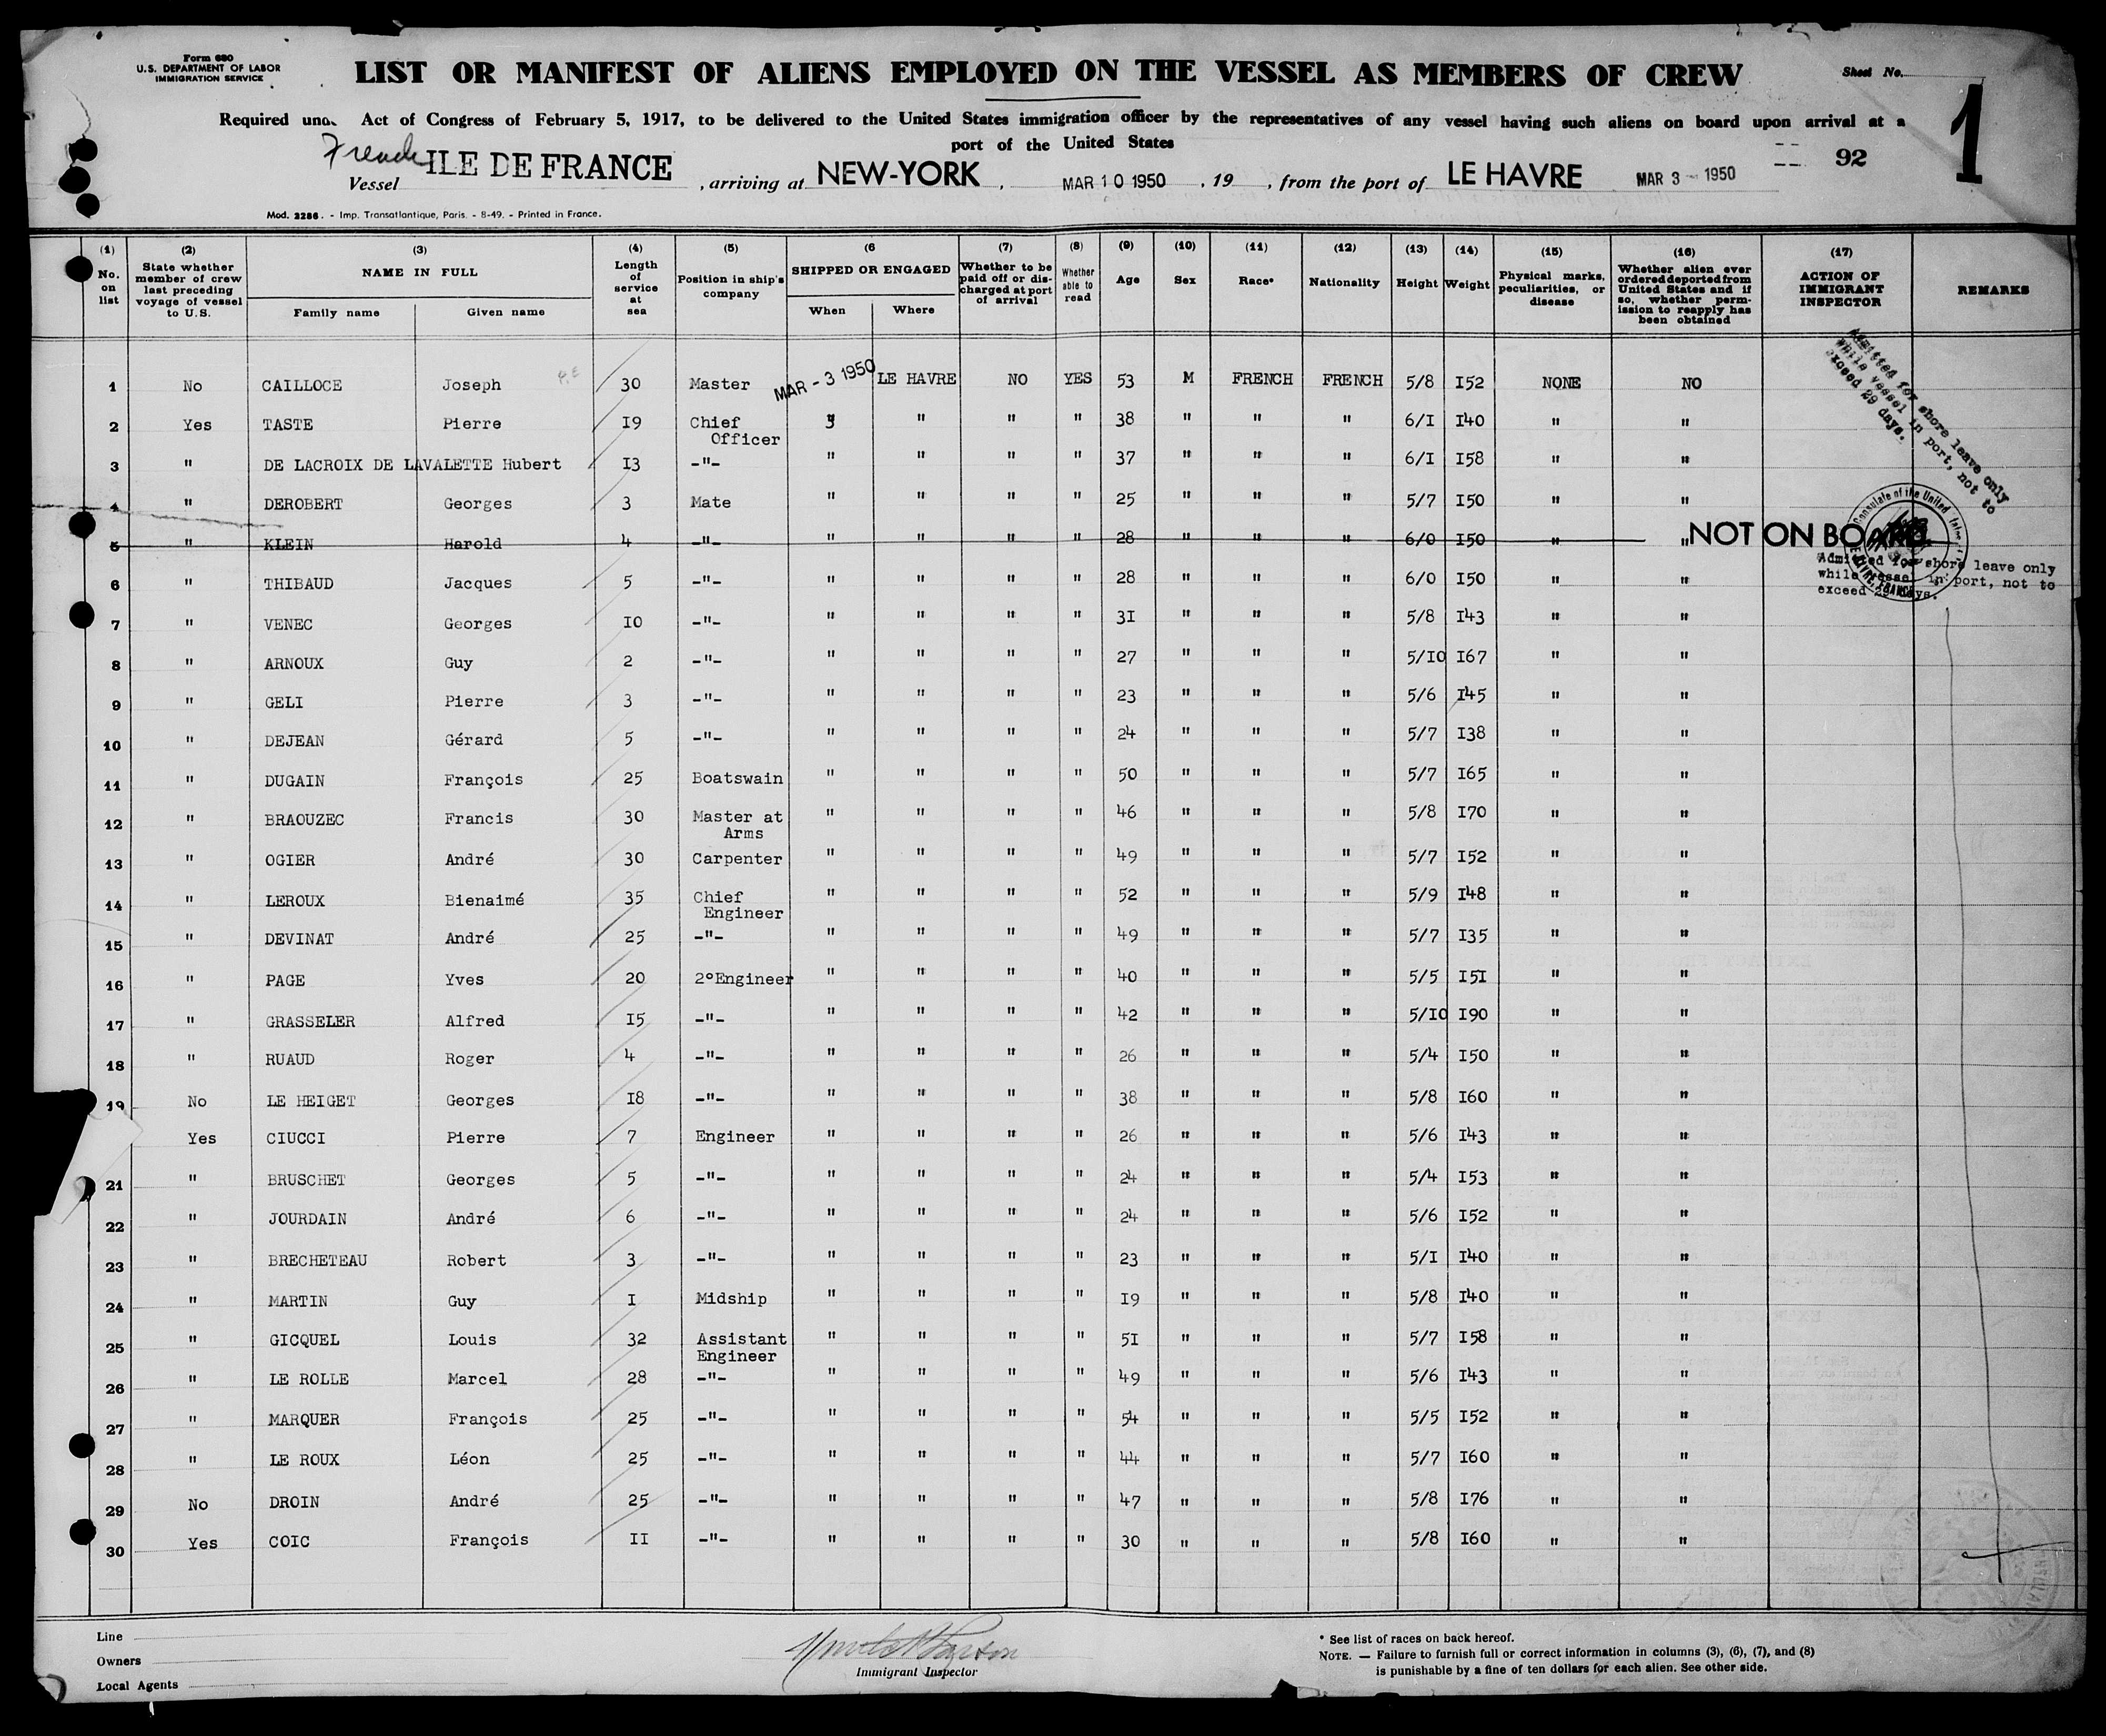 Form 680
U.S. DEPARTMENT OF LABOR
IMMIGRATION SERVICE
LIST OR MANIFEST OF ALIENS EMPLOYED ON THE VESSEL AS MEMBERS OF CREW
Sheet No. 1
Required und Act of Congress of February 5, 1917, to be delivered to the United States immigration officer by the representatives of any vessel having such aliens on board upon arrival at a
port of the United States
92
French
Vessel ILE DE FRANCE , arriving at NEW-YORK , MAR 10 1950 , 19 , from the port of LE HAVRE MAR 3 - 1950
Mod. 2286. - Imp. Transatlantique, Paris. - 8-49. - Printed in France.
(1) No. on list
(2) State whether member of crew last preceding voyage of vessel to U.S.
(3) NAME IN FULL Family name Given name
(4) Length of service at sea
(5) Position in ship's company
(6 SHIPPED OR ENGAGED When Where
(7) Whether to be paid off or discharged at port of arrival
(8) Whether able to read
(9) Age
(10) Sex
(11) Race*
(12) Nationality
(13) Height
(14) Weight
(15) Physical marks, peculiarities, or disease
(16) Whether alien ever ordered deported from United States and if so, whether permission to reapply has been obtained
(17) ACTION OF IMMIGRANT INSPECTOR
REMARKS
1 No CAILLOCE Joseph 30 Master MAR - 3 1950 LE HAVRE NO YES 53 M FRENCH FRENCH 5/8 I52 NONE NO
Admitted for shore leave only
while vessel in port, not to
exceed 29 days.
2 Yes TASTE Pierre I9 Chief Officer " " " 38 " " " 6/I I40 " "
3 " DE LACROIX DE LAVALETTE Hubert I3 -"- " " " " 37 " " " 6/I I58 " "
4 " DEROBERT Georges 3 Mate " " " " 25 " " " 5/7 I50 " "
5 " KLEIN Harold 4 -"- " " " " 28 " " " 6/0 I50 " " NOT ON BOARD
Consulate of the United States
Admitted for shore leave only
while vessel in port, not to
exceed 29 days.
6 " THIBAUD Jacques 5 -"- " " " " 28 " " " 6/0 I50 " "
7 " VENEC Georges I0 -"- " " " " 3I " " " 5/8 I43 " "
8 " ARNOUX Guy 2 -"- " " " " 27 " " " 5/I0 I67 " "
9 " GELI Pierre 3 -"- " " " " 23 " " " 5/6 I45 " "
10 " DEJEAN Gérard 5 -"- " " " " 24 " " " 5/7 I38 " "
11 " DUGAIN François 25 Boatswain " " " " 50 " " " 5/7 I65 " "
12 " BRAOUZEC Francis 30 Master at Arms " " " " 46 " " " 5/8 I70 " "
13 " OGIER André 30 Carpenter " " " " 49 " " " 5/7 I52 " "
14 " LEROUX Bienaimé 35 Chief Engineer " " " " 52 " " " 5/9 I48 " "
15 " DEVINAT André 25 -"- " " " " 49 " " " 5/7 I35 " "
16 " PAGE Yves 20 2°Engineer " " " " 40 " " " 5/5 I5I " "
17 " GRASSELER Alfred I5 -"- " " " " 42 " " " 5/I0 I90 " "
18 " RUAUD Roger 4 -"- " " " " 26 " " " 5/4 I50 " "
19 No LE HEIGET Georges I8 -"- " " " " 38 " " " 5/8 I60 " "
Yes CIUCCI Pierre 7 Engineer " " " " 26 " " " 5/6 I43 " "
21 " BRUSCHET Georges 5 -"- " " " " 24 " " " 5/4 I53 " "
22 " JOURDAIN André 6 -"- " " " " 24 " " " 5/6 I52 " "
23 " BRECHETEAU Robert 3 -"- " " " " 23 " " " 5/I I40 " "
24 " MARTIN Guy I Midship " " " " I9 " " " 5/8 I40 " "
25 " GICQUEL Louis 32 Assistant Engineer " " " " 5I " " " 5/7 I58 " "
26 " LE ROLLE Marcel 28 -"- " " " " 49 " " " 5/6 I43 " "
27 " MARQUER François 25 -"- " " " " 54 " " " 5/5 I52 " "
28 " LE ROUX Léon 25 -"- " " " " 44 " " " 5/7 I60 " "
29 No DROIN André 25 -"- " " " " 47 " " " 5/8 I76 " "
30 Yes COIC François II -"- " " " " 30 " " " 5/8 I60 " "
Line
Owners
Local Agents
Immigrant Inspector
* See list of races on back hereof.
NOTE. — Failure to furnish full or correct information in columns (3), (6), (7), and (8)
is punishable by a fine of ten dollars for each alien. See other side.